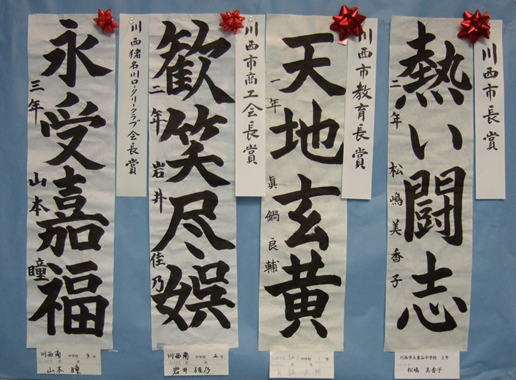 川西市長賞
熱い闘志
二年 松嶋美香子
川西市教育長賞
天地玄黄
一年 眞鍋良輔
川西市商工会長賞
歓笑尽娯
二年 岩井佳乃
川西猪名川ロータリークラブ会長賞
永受嘉福
三年 山本瞳
松嶋美香子
川西南
岩井佳乃
川西南
山本瞳